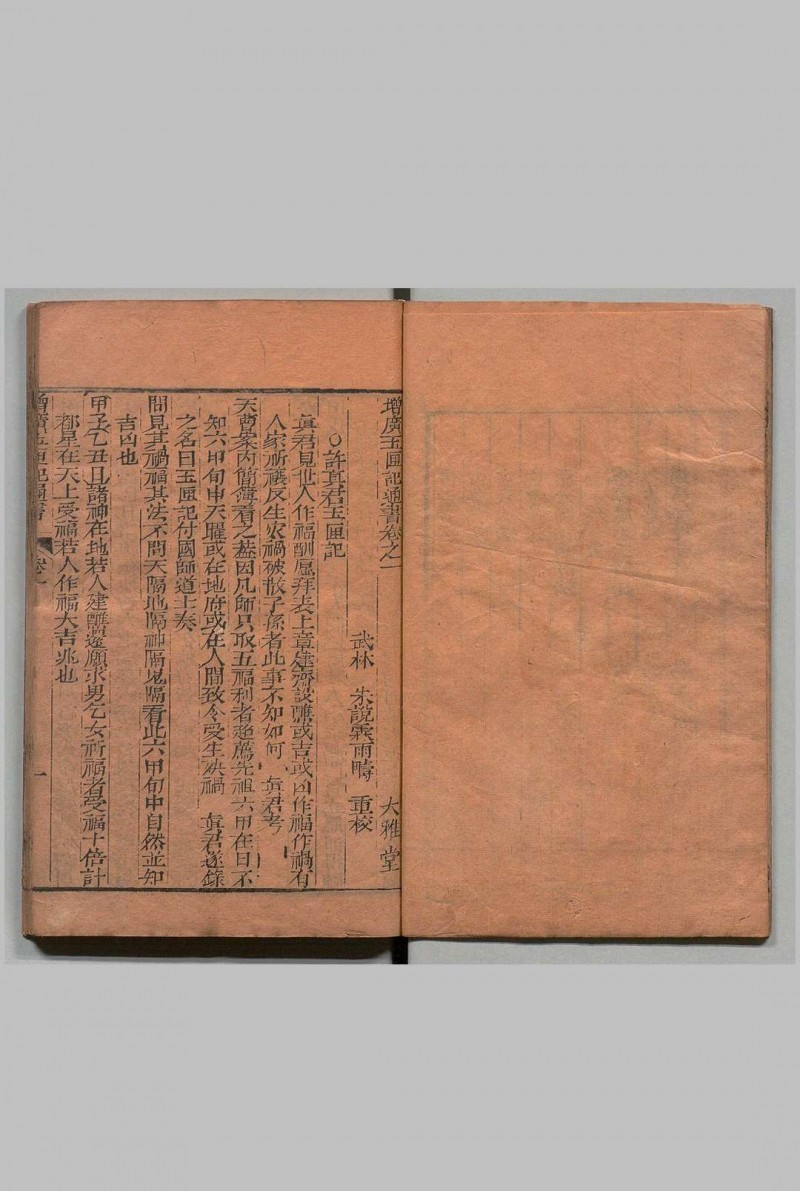 增廣玉匣記通書卷之一 大雅堂
武林 朱說霖雨疇 重校
○許眞君玉匣記
眞君見世人作福酬愿拜表上章建齋設醮或吉或凶作福作禍有
人家祈禳反生災禍破散子孫者此事不知如何 眞君考
天曹案內簡簿看之蓋因凡師只取五福利者超薦先祖六甲在日不
知六甲旬中天曜或在地府或在人間致令受生殃禍 眞君遂錄
之名曰玉匣記付國師道士奏
問見其禍福其法不問天隔地隔神隔鬼隔看此六甲旬中自然並知
吉凶也
甲子乙丑日諸神在地若人建醮還願求男乞女祈福者受福十倍計
都星在天上受福若人作福大吉兆也
增廣玉匣記通書 卷之一 一